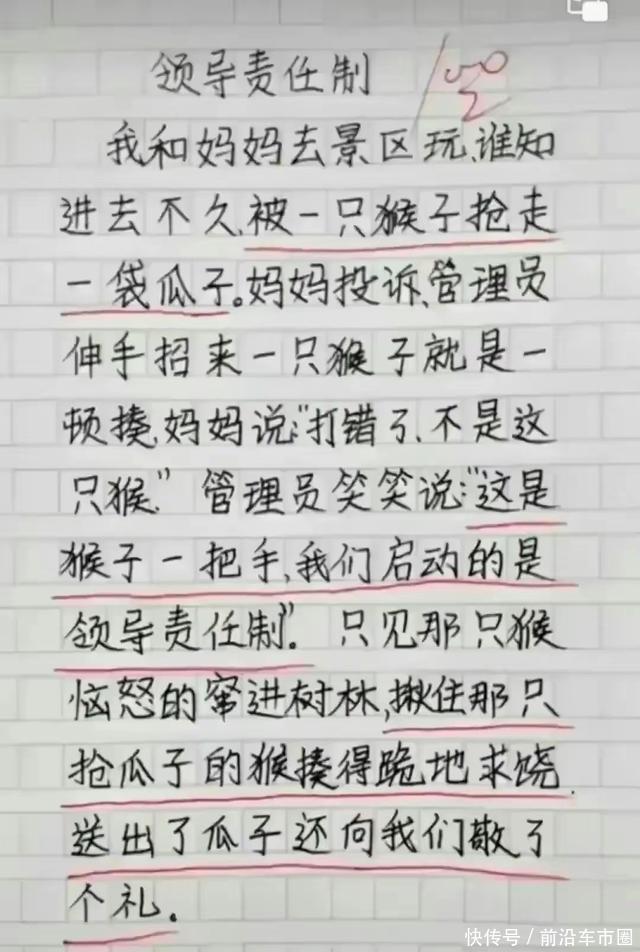 领导责任制 100
我和妈妈去景区玩,谁知
进去不久,被一只猴子抢走
一袋瓜子。妈妈投诉,管理员
伸手招来一只猴子就是一
顿揍,妈妈说:"打错了,不是这
只猴。"管理员笑笑说:"这是
猴子一把手,我们启动的是
领导责任制"。只见那只猴
恼怒的窜进树林,揪住那只
抢瓜子的猴揍得跪地求饶,
送出了瓜子还向我们敬了
个礼。
快传号/前沿车市圈